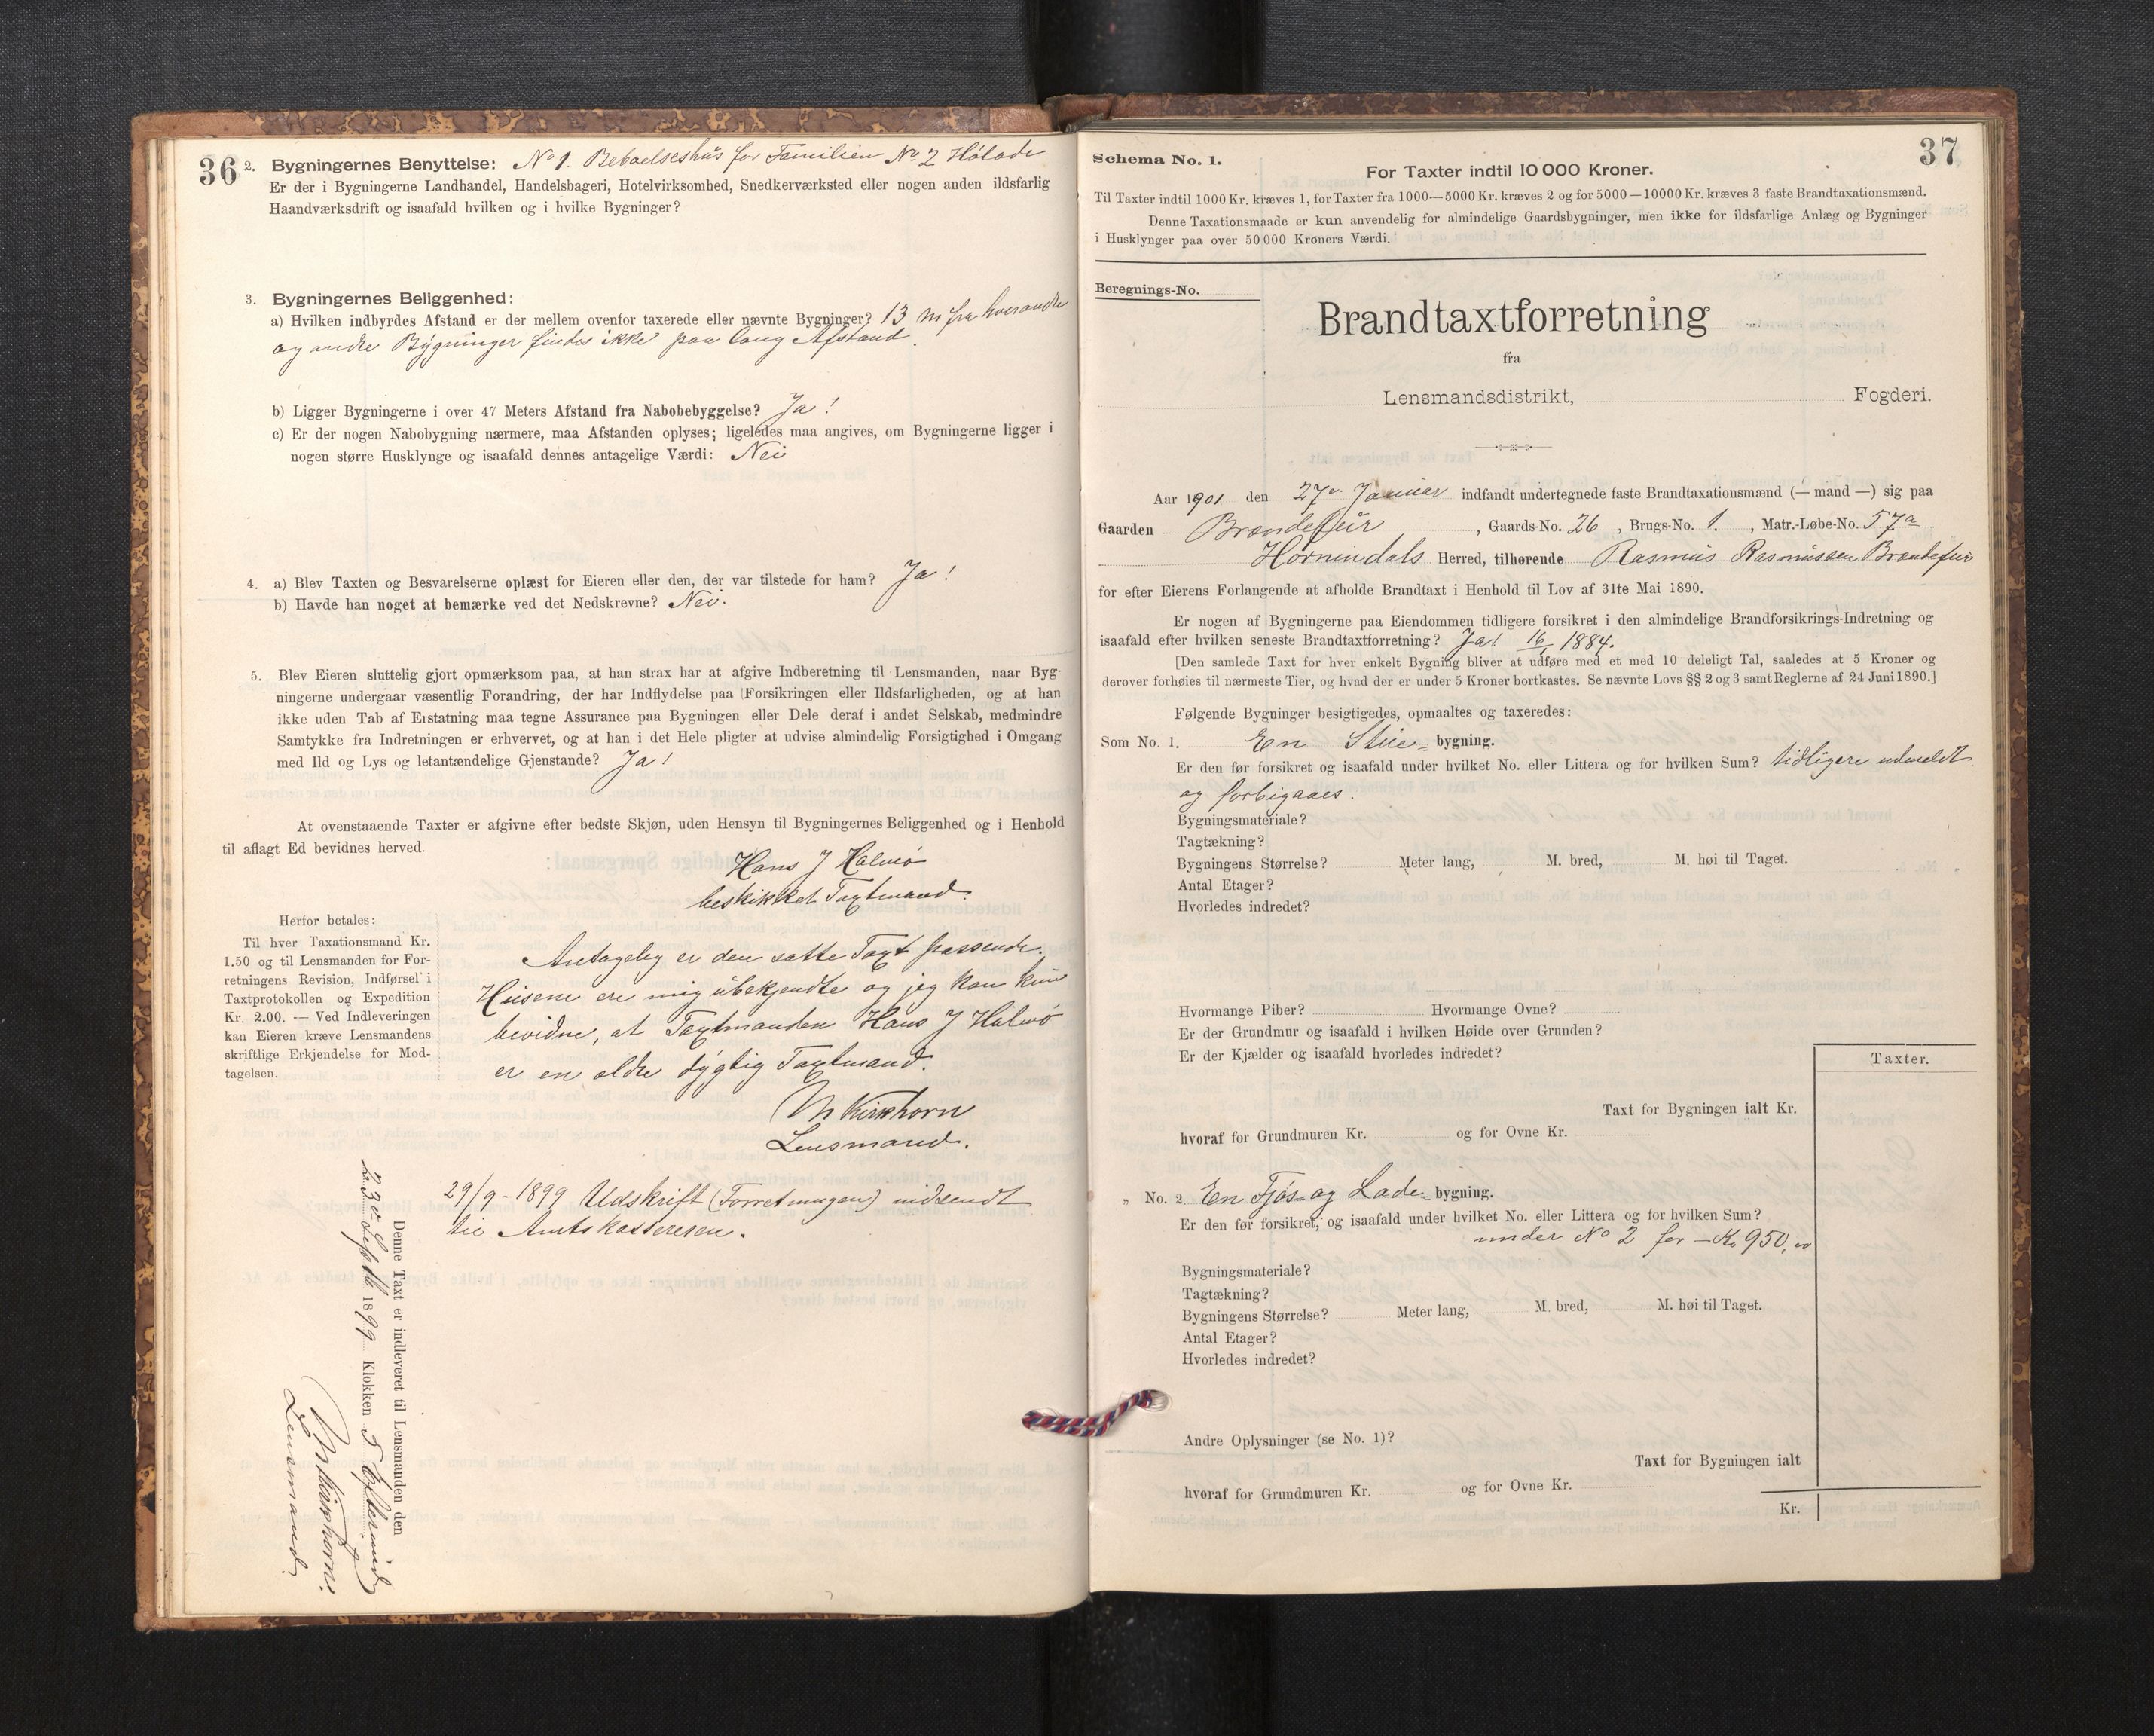 36
2. Bygningernes Benyttelse: No 1. Beboelseshus for Familien No 2 Hölade
Er der i Bygningerne Landhandel, Handelsbageri, Hotelvirksomhed, Snedkerværksted eller nogen anden ildsfarlig
Haandværksdrift og isaafald hvilken og i hvilke Bygninger?
3. Bygningernes Beliggenhed:
a) Hvilken indbyrdes Afstand er der mellem ovenfor taxerede eller nævnte Bygninger? 13 m fra hverandre
og andre Bygninger findes ikke paa lang Afstand.
b) Ligger Bygningerne i over 47 Meters Afstand fra Nabobebyggelse? Ja!
c) Er der nogen Nabobygning nærmere, maa Afstanden oplyses; ligeledes maa angives, om Bygningerne ligger i
nogen større Husklynge og isaafald dennes antagelige Værdi: Nei
4. a) Blev Taxten og Besvarelserne oplæst for Eieren eller den, der var tilstede for ham? Ja!
b) Havde han noget at bemærke ved det Nedskrevne? Nei.
5. Blev Eieren sluttelig gjort opmærksom paa, at han strax har at afgive Indberetning til Lensmanden, naar Byg-
ningerne undergaar væsentlig Forandring, der har Indflydelse paa Forsikringen eller Ildsfarligheden, og at han
ikke uden Tab af Erstatning maa tegne Assurance paa Bygningen eller Dele deraf i andet Selskab, medmindre
Samtykke fra Indretningen er erhvervet, og at han i det Hele pligter at udvise almindelig Forsigtighed i Omgang
med Ild og Lys og letantændelige Gjenstande? Ja!
At ovenstaaende Taxter er afgivne efter bedste Skjøn, uden Hensyn til Bygningernes Beliggenhed og i Henhold
til aflagt Ed bevidnes herved.
Hans J Halmø
beskikket Taxtmand.
Herfor betales:
Til hver Taxationsmand Kr.
1.50 og til Lensmanden for For-
retningens Revision, Indførsel i
Taxtprotokollen og Expedition
Kr. 2.00. — Ved Indleveringen
kan Eieren kræve Lensmandens
skriftlige Erkjendelse for Mod-
tagelsen.
Antagelig er den satte Taxt passende.
Husene ere mig ubekjendte og jeg kan kun
bevidne, at Taxtmanden Hans J Halmø
er en ældre dygtig Taxtmand.
M Kirkhorn
Lensmand.
29/9-1899 Udskrift (Forretningen) indsendt
til Amtskassereren.
Denne Taxt er indleveret til Lensmanden den
23de Septb 1899 Klokken 5 Eftermid
M Kirkhorn.
Lensmand.
37
Schema No. 1.
For Taxter indtil 10 000 Kroner.
Til Taxter indtil 1000 Kr. kræves 1, for Taxter fra 1000—5000 Kr. kræves 2 og for 5000—10000 Kr. kræves 3 faste Brandtaxationsmænd.
Denne Taxationsmaade er kun anvendelig for almindelige Gaardsbygninger, men ikke for ildsfarlige Anlæg og Bygninger
i Husklynger paa over 50 000 Kroners Værdi.
Beregnings-No.
Brandtaxtforretning
fra
Lensmandsdistrikt, Fogderi.
Aar 1901 den 27de Januar indfandt undertegnede faste Brandtaxationsmænd (— mand —) sig paa
Gaarden Brændefur, Gaards-No. 26, Brugs-No. 1., Matr.-Løbe-No. 57a
Hornindals Herred, tilhørende Rasmus Rasmussen Brændefur
for efter Eierens Forlangende at afholde Brandtaxt i Henhold til Lov af 31te Mai 1890.
Er nogen af Bygningerne paa Eiendommen tidligere forsikret i den almindelige Brandforsikrings-Indretning og
isaafald efter hvilken seneste Brandtaxtforretning? Ja! 16/1 1884.
[Den samlede Taxt for hver enkelt Bygning bliver at udføre med et med 10 deleligt Tal, saaledes at 5 Kroner og
derover forhøies til nærmeste Tier, og hvad der er under 5 Kroner bortkastes. Se nævnte Lovs §§ 2 og 3 samt Reglerne af 24 Juni 1890.]
Følgende Bygninger besigtigedes, opmaaltes og taxeredes:
Som No. 1. En Stue- bygning.
Er den før forsikret og isaafald under hvilket No. eller Littera og for hvilken Sum? tidligere udmeldt
og forbigaaes.
Bygningsmateriale?
Tagtækning?
Bygningens Størrelse? Meter lang, M. bred, M. høi til Taget.
Antal Etager?
Hvorledes indredet?
Hvormange Piber? Hvormange Ovne?
Er der Grundmur og isaafald i hvilken Høide over Grunden?
Er der Kjælder og isaafald hvorledes indredet?
Taxter.
Taxt for Bygningen ialt Kr.
hvoraf for Grundmuren Kr. og for Ovne Kr.
„ No. 2. En Fjøs- og Lade- bygning.
Er den før forsikret, og isaafald under hvilket No. eller Littera og for hvilken Sum?
under No 2 for - Kr 950,00
Bygningsmateriale?
Tagtækning?
Bygningens Størrelse? Meter lang, M. bred, M. høi til Taget.
Antal Etager?
Hvorledes indredet?
Andre Oplysninger (se No. 1)?
Taxt for Bygningen ialt
hvoraf for Grundmuren Kr. og for Ovne Kr.
Kr.